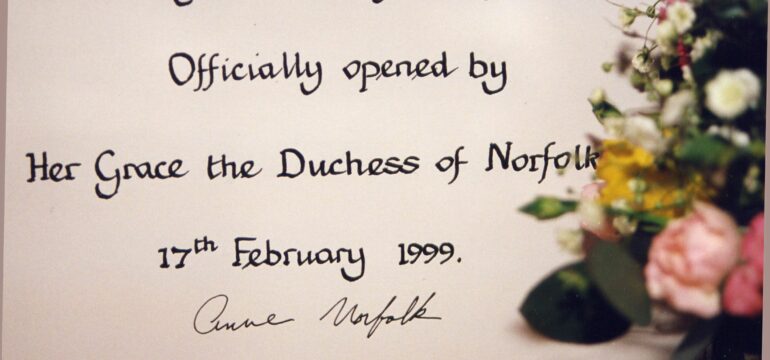 Officially opened by
Her Grace the Duchess of Norfolk
17th February 1999.
Anne Norfolk